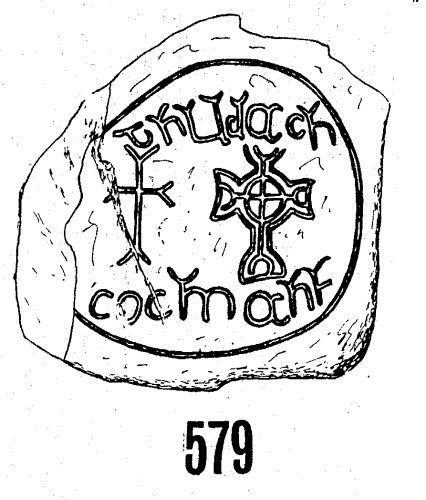 thuldach
cocmann
579